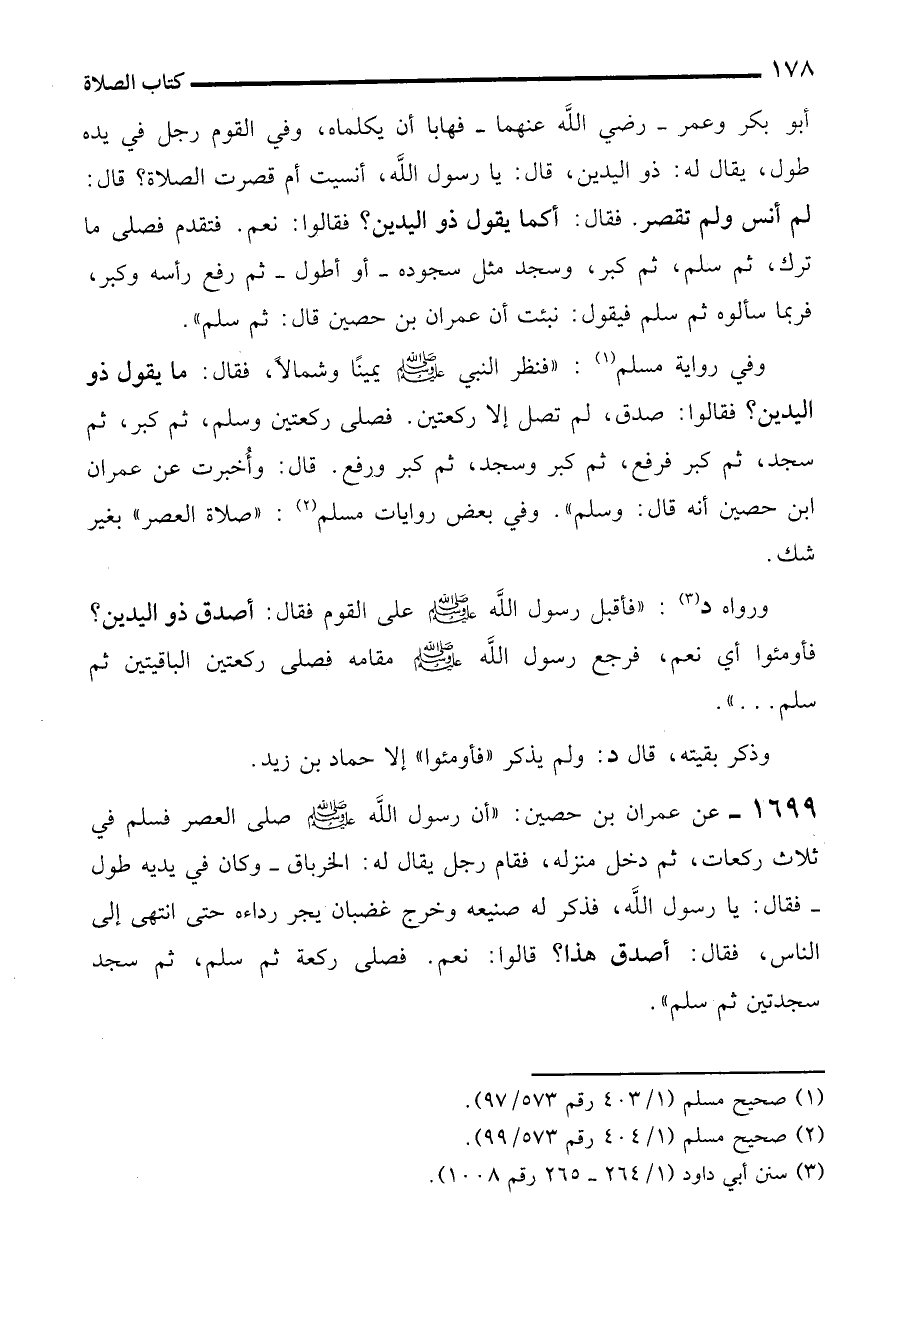 ١٧٨ كتاب الصلاة
أبو بكر وعمر ـ رضي اللَّه عنهما ـ فهابا أن يكلماه، وفي القوم رجل في يده
طول، يقال له: ذو اليدين، قال: يا رسول اللَّه، أنسيت أم قصرت الصلاة؟ قال:
لم أنس ولم تقصر. فقال: أكما يقول ذو اليدين؟ فقالوا: نعم. فتقدم فصلى ما
ترك، ثم سلم، ثم كبر، وسجد مثل سجوده ـ أو أطول ـ ثم رفع رأسه وكبر،
فربما سألوه ثم سلم فيقول: نبئت أن عمران بن حصين قال: ثم سلم».
وفي رواية مسلم(١) : «فنظر النبي ﷺ يمينًا وشمالاً، فقال: ما يقول ذو
اليدين؟ فقالوا: صدق، لم تصل إلا ركعتين. فصلى ركعتين وسلم، ثم كبر، ثم
سجد، ثم كبر فرفع، ثم كبر وسجد، ثم كبر ورفع. قال: وأُخبرت عن عمران
ابن حصين أنه قال: وسلم». وفي بعض روايات مسلم(٢) : «صلاة العصر» بغير
شك.
ورواه د(٣) : «فأقبل رسول اللَّه ﷺ على القوم فقال: أصدق ذو اليدين؟
فأومئوا أي نعم، فرجع رسول اللَّه ﷺ مقامه فصلى ركعتين الباقيتين ثم
سلم...».
وذكر بقيته، قال د: ولم يذكر «فأومئوا» إلا حماد بن زيد.
١٦٩٩ ـ عن عمران بن حصين: «أن رسول اللَّه ﷺ صلى العصر فسلم في
ثلاث ركعات، ثم دخل منزله، فقام رجل يقال له: الخرباق ـ وكان في يديه طول
ـ فقال: يا رسول اللَّه، فذكر له صنيعه وخرج غضبان يجر رداءه حتى انتهى إلى
الناس، فقال: أصدق هذا؟ قالوا: نعم. فصلى ركعة ثم سلم، ثم سجد
سجدتين ثم سلم».
(١) صحيح مسلم (١/ ٤٠٣ رقم ٥٧٣/ ٩٧).
(٢) صحيح مسلم (١/ ٤٠٤ رقم ٥٧٣/ ٩٩).
(٣) سنن أبي داود (١/ ٢٦٤ ـ ٢٦٥ رقم ١٠٠٨).